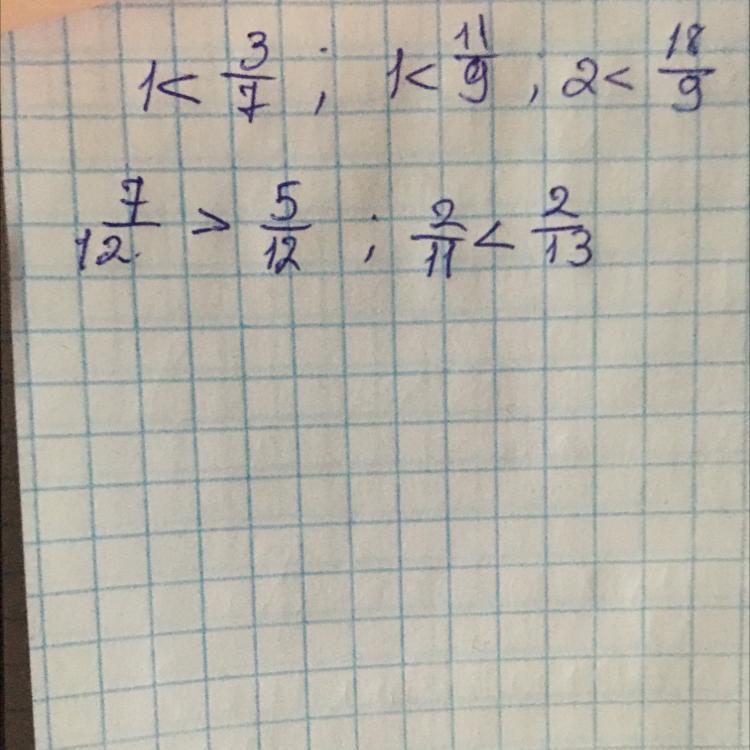 1 < 3/7 ; 1 < 11/9 , 2 < 18/9
7/12 > 5/12 ; 2/11 < 2/13